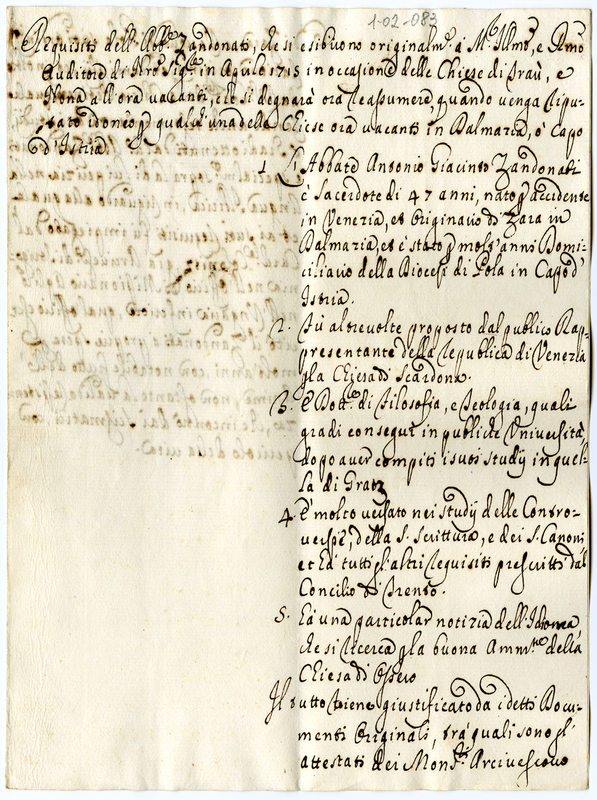 1-02-083
Requisiti dell' Abb.e Zandonati, che si esibirono originalm.e à M.r Illmo, e Rmo
Auditore di Nro Sig.re in Aprile 1715 in occasione delle Chiese di Traù, e
Nona all'ora vacanti, che si degnarà ora reassumere, quando venga ripu-
tato idoneo p qualch' una delle Chiese ora vacanti in Dalmazia, ò Capo
d'Istria.
1 L'Abbate Antonio Giacinto Zandonati
è Sacerdote di 47 anni, nato p accidente
in Venezia, et Originario di Zara in
Dalmazia, et è stato p molt'anni Domi-
ciliario della Diocesi di Pola in Capo d'
Istria.
2. Fù altrevolte proposto dal publico Rap-
presentante della Republica di Venezia
p la Chiesa di Scardona.
3. È Dott.e di Filosofia, e Teologia, quali
gradi conseguì in publiche Università,
dopo aver compiti i suoi studij in quel-
la di Gratz
4. È molto versato nei studij delle Contro-
versie, della S. Scrittura, e dei S. Canoni
et hà tutti gl'altri requisiti prescritti dal
Concilio di Trento.
5. Hà una particolar notizia dell'Idioma,
che si ricerca p la buona Amm.ne della
Chiesa di Ossero
Il tutto viene giustificato da i detti Docu-
menti Originali, trà quali sono gl'
attestati dei Mons.ri Arcivescovo